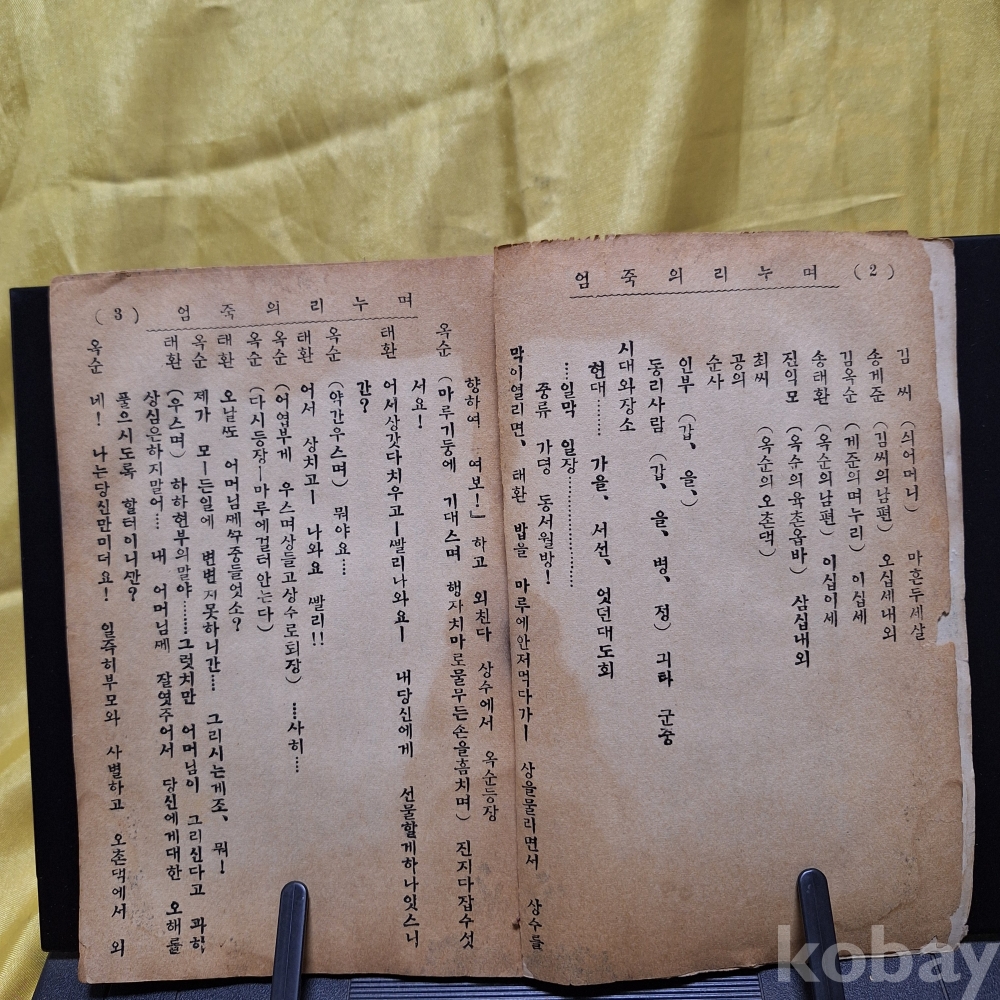 (2) 며누리의죽엄
김 씨 (싀어머니) 마흔두세살
송게준 (김씨의남편) 오십세내외
김옥순 (게준의며누리) 이십세
송태환 (옥순의남편) 이십이세
진익모 (옥순의육촌옵바) 삼십내외
최씨 (옥순의오촌댁)
공의
순사
인부 (갑、을、)
동리사람 (갑、을、병、정) 긔타 군중
시대와장소
현대…… 가을、서선、엇던대도회
…일막 일장………………
중류 가뎡 동서월방!
막이열리면、태환 밥을 마루에안저먹다가ー 상을물리면서 상수를
(3) 며누리의죽엄
향하여 여보!」 하고 외친다 상수에서 옥순등장
옥순 (마루기둥에 기대스며 행자치마로물무든손을흠치며) 진지다잡수섯
서요!
태환 어서상갓다치우고ー빨리나와요ー 내당신에게 선물할게하나잇스니
간?
옥순 (약간우스며) 뭐야요…
태환 어서 상치고ー 나와요 빨리!! …사히…
옥순 (어엽부게 우스며상들고상수로퇴장)
옥순 (다시등장ー마루에걸터안는다)
태환 오날또 어머님께꾸중들엇소?
옥순 제가 모ー든일에 변변치못하니간… 그리시는게조、뭐!
태환 (우스며) 하하현부의말야……그럿치만 어머님이 그리신다고 과히、
상심은하지말어… 내 어머님께 잘엿주어서 당신에게대한 오해를
풀으시도록 할터이니깐?
옥순 네! 나는당신만미더요! 일즉히부모와 사별하고 오촌댁에서 외
kobay